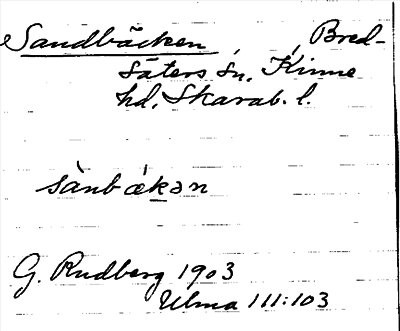 Sandbäcken, , Bred-
Säters Sn, Kinne
hd, Skarab. l.
sànbækən
G. Rudberg 1903
Ulma 111:103